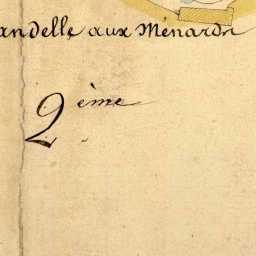 andelle aux Ménards
2ème